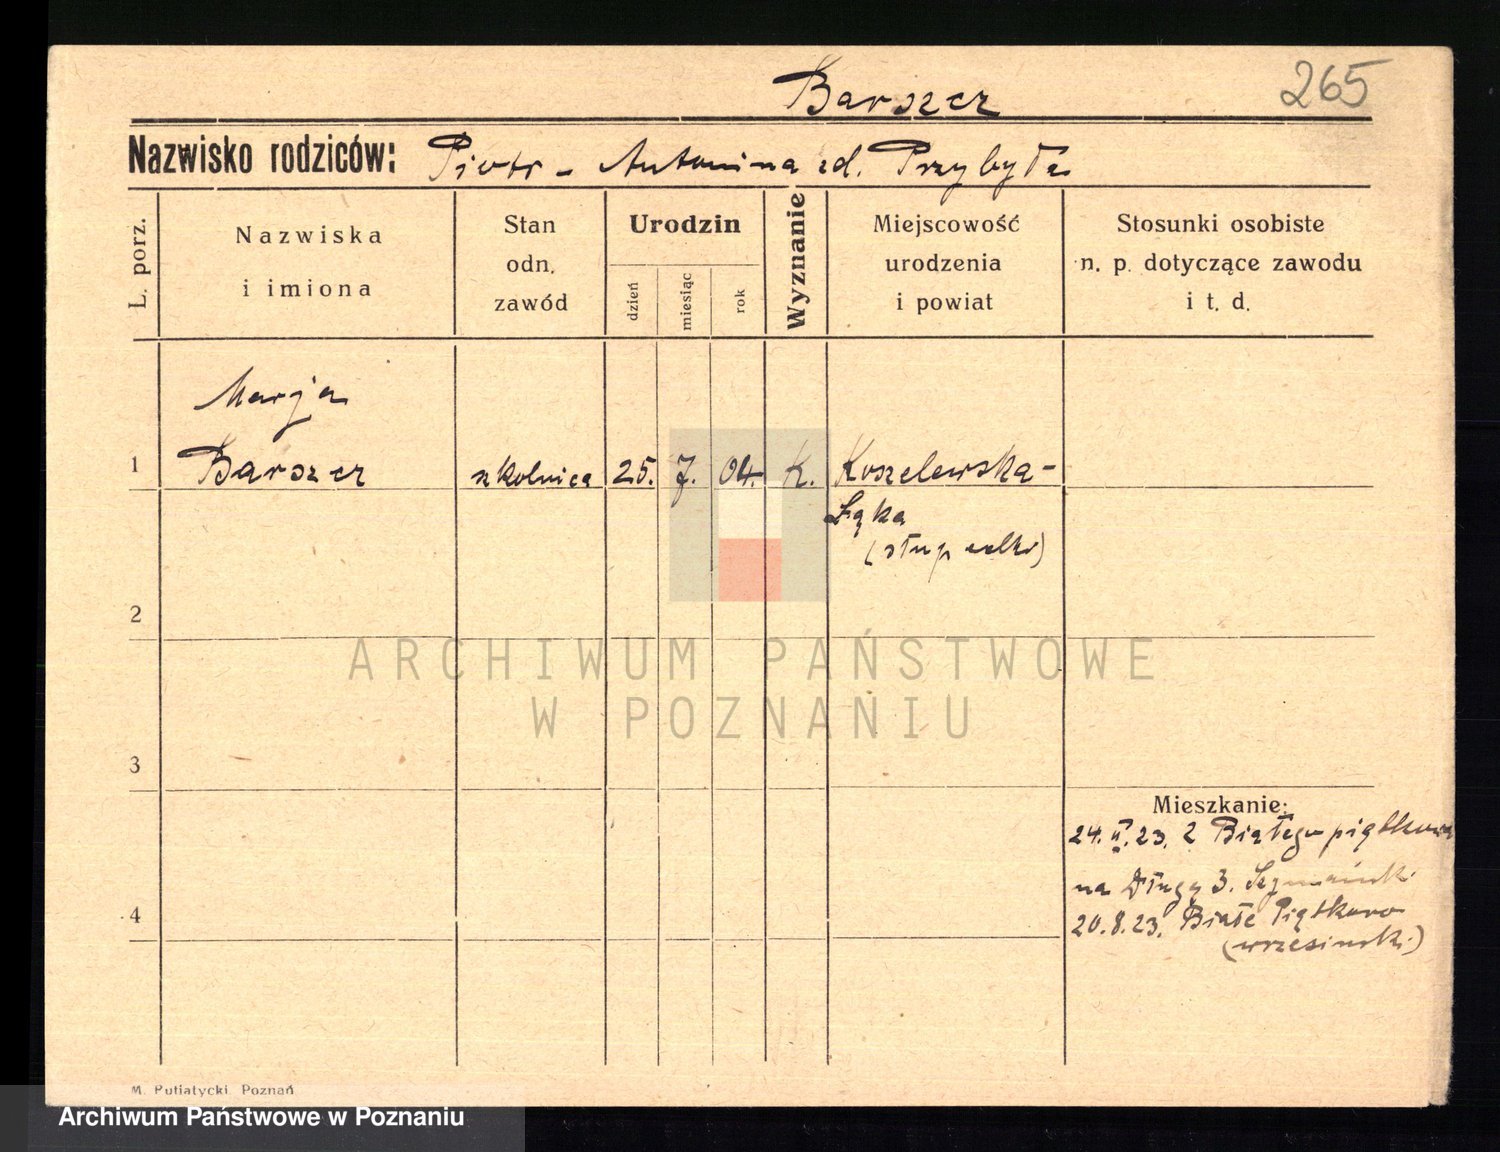 265
Barszcz
Nazwisko rodziców: Piotr - Antonina zd. Przybyła
L. porz.
Nazwiska
i imiona
Stan
odn.
zawód
Urodzin
dzień
miesiąc
rok
Wyznanie
Miejscowość
urodzenia
i powiat
Stosunki osobiste
n. p. dotyczące zawodu
i t. d.
Marja
1 Barszcz szkolnica 25. 7. 04. K. Koszelewska-
Łąka
2
ARCHIWUM PAŃSTWOWE
W POZNANIU
3
Mieszkanie:
24. 23. z Białego piątkowa
na Długą 3.
4
20.8.23. Białe Piątkowo
(wrzesiński)
M. Putiatycki Poznań
Archiwum Państwowe w Poznaniu